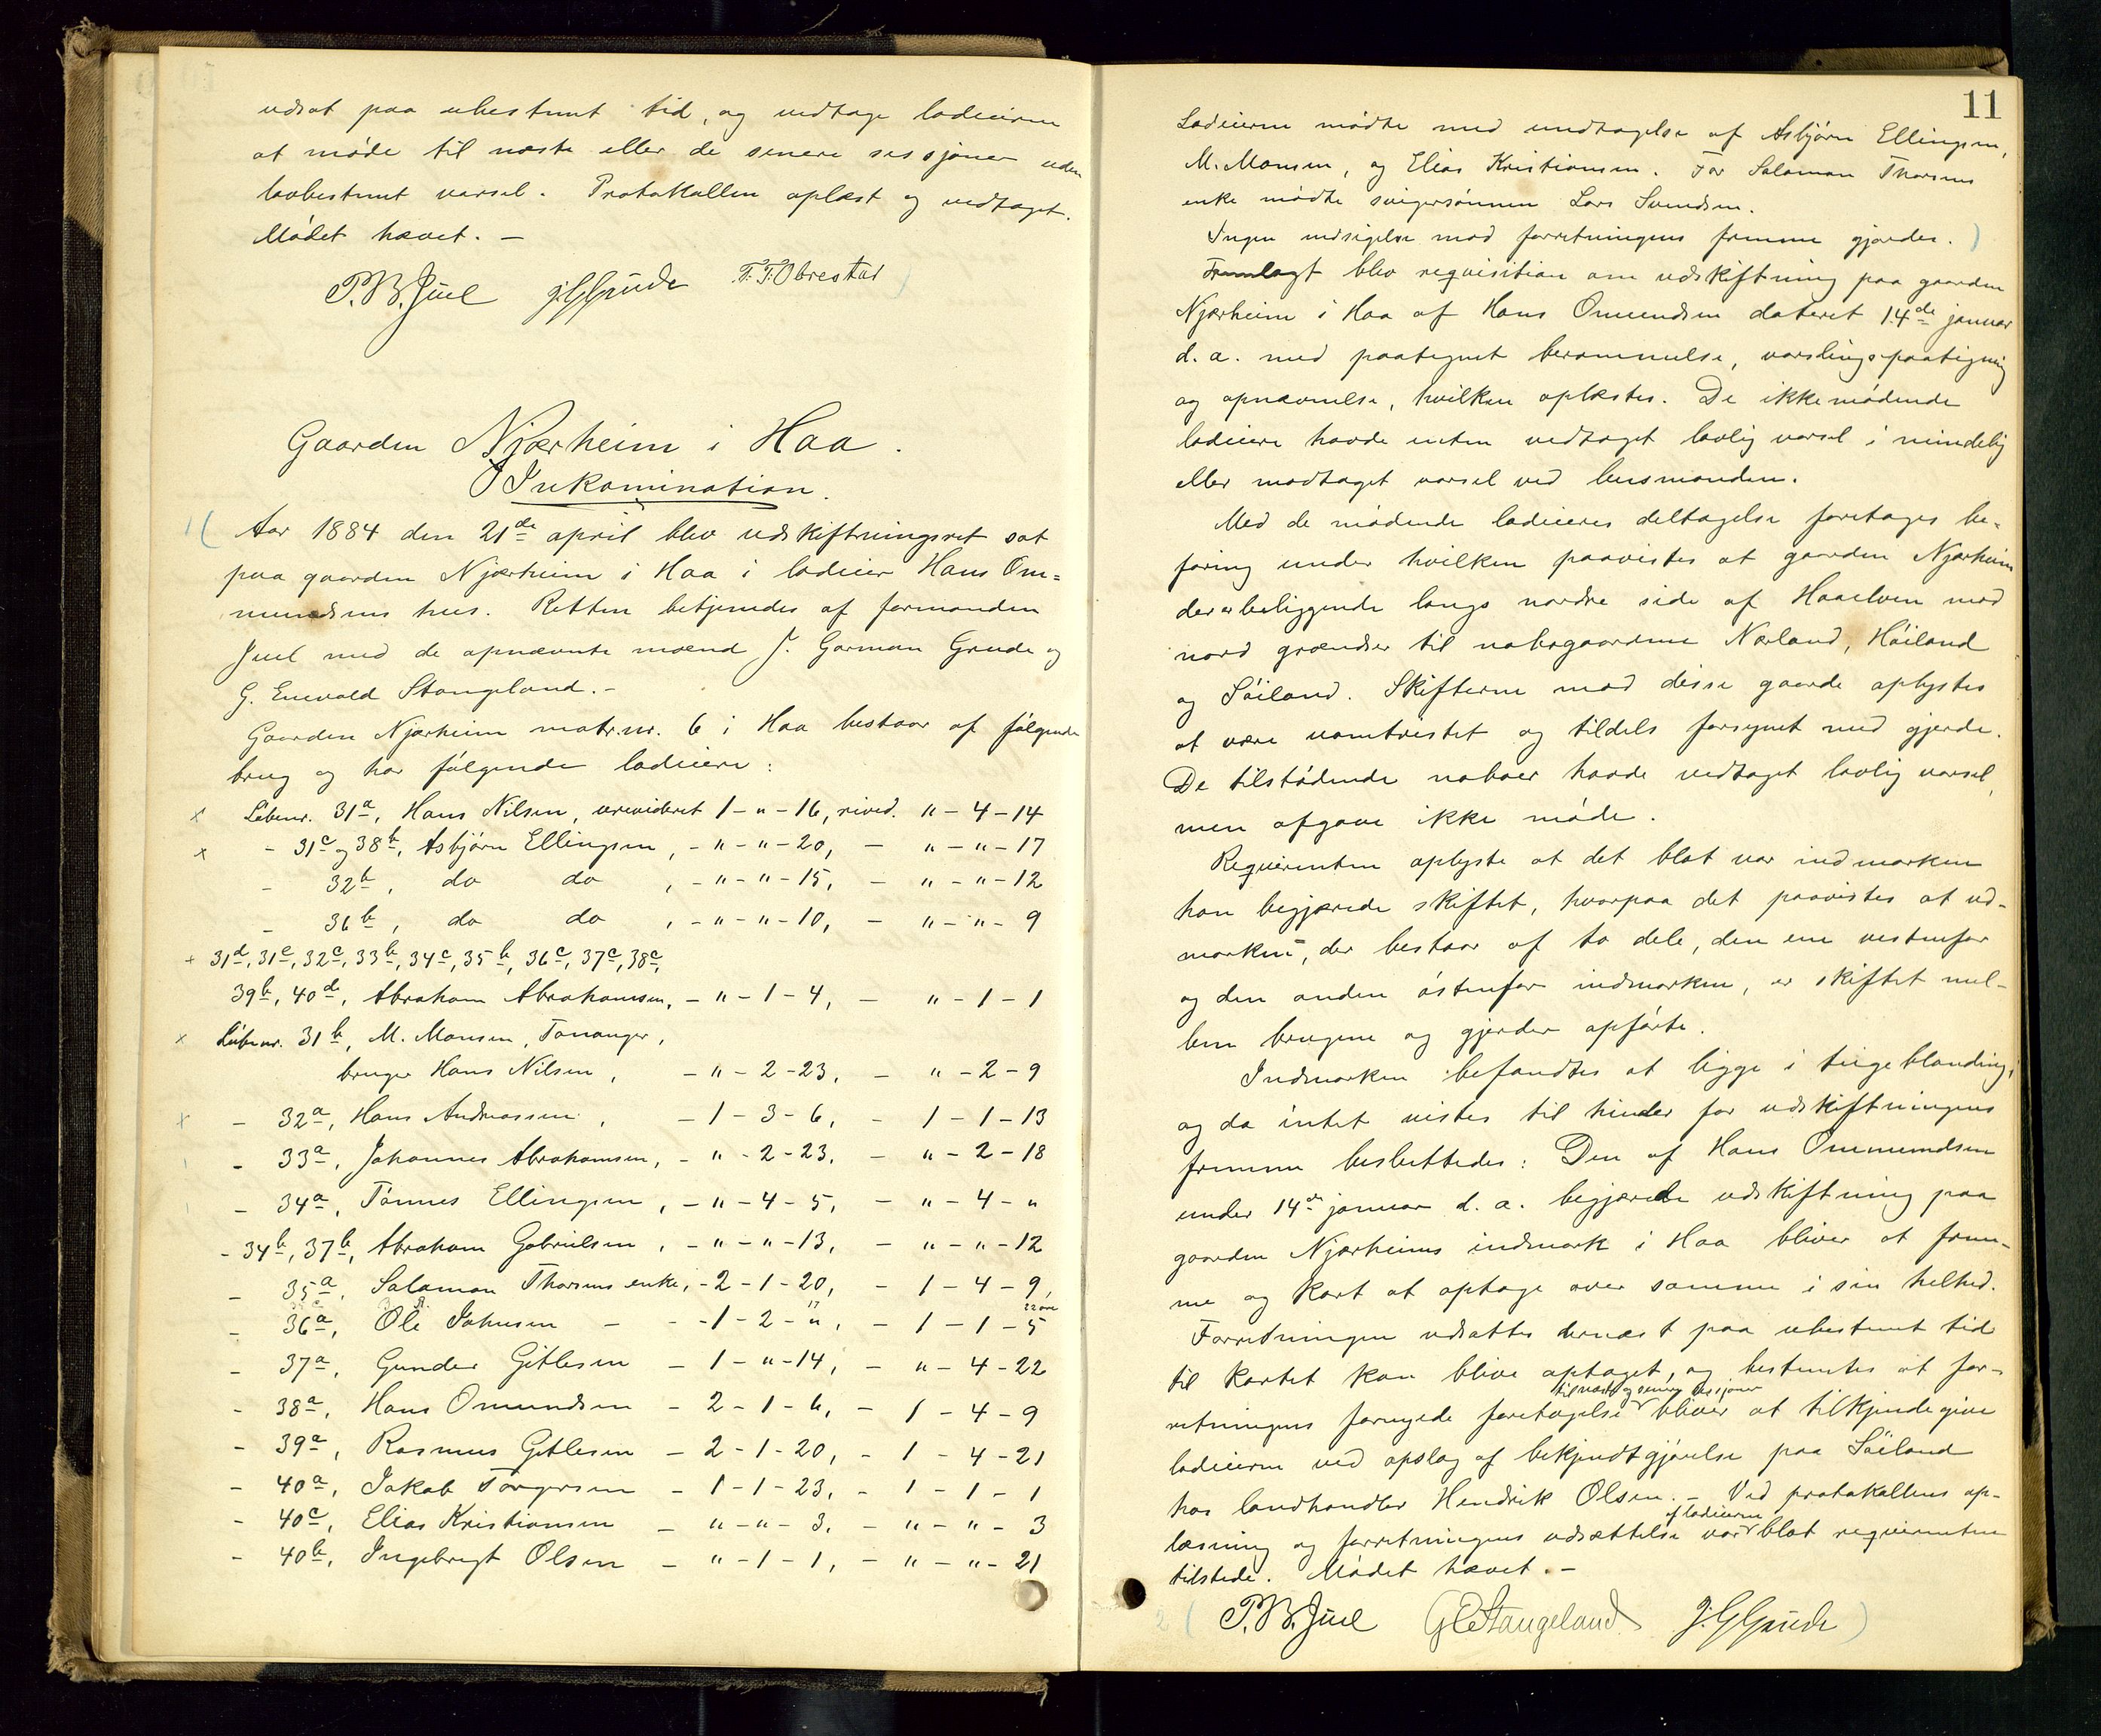 udsat paa ubestemt tid, og vedtage lodeierne
at møde til næste eller de senere sessjoner uden
lovbestemt varsel. Protokollen oplæst og vedtaget.
Mødet hævet. –
P. B. Juel J. G. Grude T. T. Obrestad
Gaarden Njærheim i Haa.
Inkamination.
1( Aar 1884 den 21de april blev udskiftningsret sat
paa gaarden Njærheim i Haa i lodeier Hans Om=
mundsens hus. Retten betjenedes af formanden
Juel med de opnævnte mænd J. Garman Grude og
G. Enevald Stangeland. –
Gaarden Njærheim matr.nr. 6 i Haa bestaar af følgende
brug og har følgende lodeiere:
x Løbenr. 31a, Hans Nilsen, urevideret 1 – " – 16, revid. " – 4 – 14
x – 31c og 38b, Asbjørn Ellingsen, – " – " – 20, – " – " – 17
– 32b, do do, – " – " – 15, – " – " – 12
– 36b, do do, – " – " – 10, – " – " – 9
+ 31d, 31e, 32c, 33b, 34c, 35b, 36c, 37c, 38c,
39b, 40d, Abraham Abrahamsen, – " – 1 – 4, – " – 1 – 1
x Løbenr. 31b, M. Monsen, Tananger,
bruger Hans Nilsen, – " – 2 – 23, – " – 2 – 9
x – 32a, Hans Andreassen, – 1 – 3 – 6, – 1 – 1 – 13
– 33a, Johannes Abrahamsen, – " – 2 – 23, – " – 2 – 18
– 34a, Tønnes Ellingsen, – " – 4 – 5, – " – 4 – "
– 34b, 37b, Abraham Gabrielsen, – " – " – 13, – " – " – 12
– 35a, Salamon Thorsens enke, – 2 – 1 – 20, – 1 – 4 – 9,
– 36a, Ole Johnsen – – 1 – 2 – ", – 1 – 1 – 5
– 37a, Gunder Gitlesen – 1 – " – 14, – " – 4 – 22
– 38a, Hans Omundsen – 2 – 1 – 6, – 1 – 4 – 9
– 39a, Rasmus Gitlesen – 2 – 1 – 20, – 1 – 4 – 21
– 40a, Jakob Torgersen – 1 – 1 – 23, – 1 – 1 – 1
– 40c, Elias Kristiansen – " – " – 3, – " – " – 3
– 40b, Ingebrigt Olsen – " – 1 – 1, – " – " – 21
11
Lodeierne mødte med undtagelse af Asbjørn Ellingsen,
M. Monsen, og Elias Kristiansen. For Salamon Thorsens
enke mødte svigersønnen Lars Svendsen.
Ingen indsigelse mod forretningens fremme gjordes. )
Fremlagt blev requisition om udskiftning paa gaarden
Njærheim i Haa af Hans Omundsen dateret 14de januar
d. a. med paategnet berammelse, varslingspaategning
og opnævnelse, hvilken oplæstes. De ikke mødende
lodeiere havde enten vedtaget lovlig varsel i mindelig
eller modtaget varsel ved lensmanden.
Med de mødende lodeieres deltagelse foretages be-
faring under hvilken paavistes at gaarden Njærheim
der er beliggende langs nordre side af Haaelven mod
nord grændser til nabogaardene Nærland, Høiland
og Søiland. Skifterne mod disse gaarde oplystes
at være uomtvistet og tildels forsynet med gjerde.
De tilstødende naboer havde vedtaget lovlig varsel,
men afgave ikke møde.
Requirenten oplyste at det blot var indmarken
han begjærede skiftet, hvorpaa det paavistes at ud-
marken, der bestaar af to dele, den ene vestenfor
og den anden østenfor indmarken, er skiftet mel-
lem brugene og gjerder opførte.
Indmarken befandtes at ligge i teigeblanding,
og da intet vistes til hinder for udskiftningens
fremme besluttedes: Den af Hans Ommundsen
under 14de januar d. a. begjærede udskiftning paa
gaarden Njærheims indmark i Haa bliver at frem-
me og kart at optage over samme i sin helhed.
Forretningen udsattes dernæst paa ubestemt tid
til kartet kan blive optaget, og bestemtes at for-
til næste og senere sessjoner
retningens fornyede foretagelse bliver at tilkjendegive
lodeierne ved opslag af bekjendtgjørelse paa Søiland
hos landhandler Hendrik Olsen. – Ved protokollens op-
af lodeierne
læsning og forretningens udsættelse var blot requirenten
tilstede. Mødet hævet. –
2 ( P. B. Juel G E Stangeland J. G Grude )